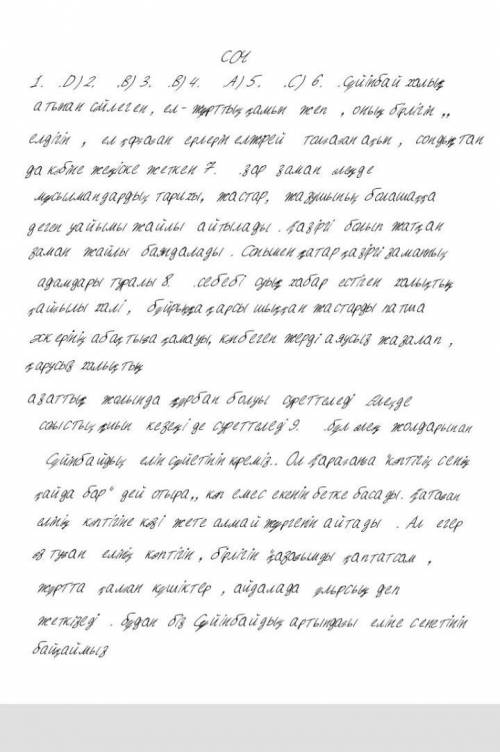 СОЧ
1. .D) 2. .B) 3. .B) 4. .A) 5. .C) 6. .Сүйінбай халық
атынан сөйлеген, ел-жұрттың қамын жеп , оның бірлігін ,,
елдігін , ел қорғаған ерлерін елжірей толғаған ақын , сондықтан
да көбіне жеңіске жеткен 7. .зар заман өлеңде
мұсылмандардың тарихы, жастар, жазушының болашаққа
деген уайымы жайлы айтылады . қазіргі болып жатқан
заман жайлы баяндалады . Сонымен қатар қазіргі заманның
адамдары туралы 8. .себебі суық хабар естіген халықтың
қайғылы халі , бұйрыққа қарсы шыққан жастарды патша
әскерінің абақтыға қамауы, көптеген жерді аяусыз жазалап ,
қарусыз халықтың
азаттық жолында құрбан болуы суреттеледі Өлеңде
соғыстың қиын кезеңі де суреттеледі 9. .бұл өлең жолдарынан
Сүйінбайдың елін сүйетінін көреміз.. Ол Қатағанға "көптігің сенің
қайда бар" дей отыра,, көп емес екенін бетке басады . Қатаған
елінің көптігіне көзі жете алмай жүргенін айтады . Ал егер
өз туған елінің көптігін , бірлігін "қазағымды қаптатсам ,
жұртта қалған күшіктер , айдалада ұлырсың деп
жеткізеді . бұдан біз Сүйінбайдың артындағы еліне сенетінін
байқаймыз